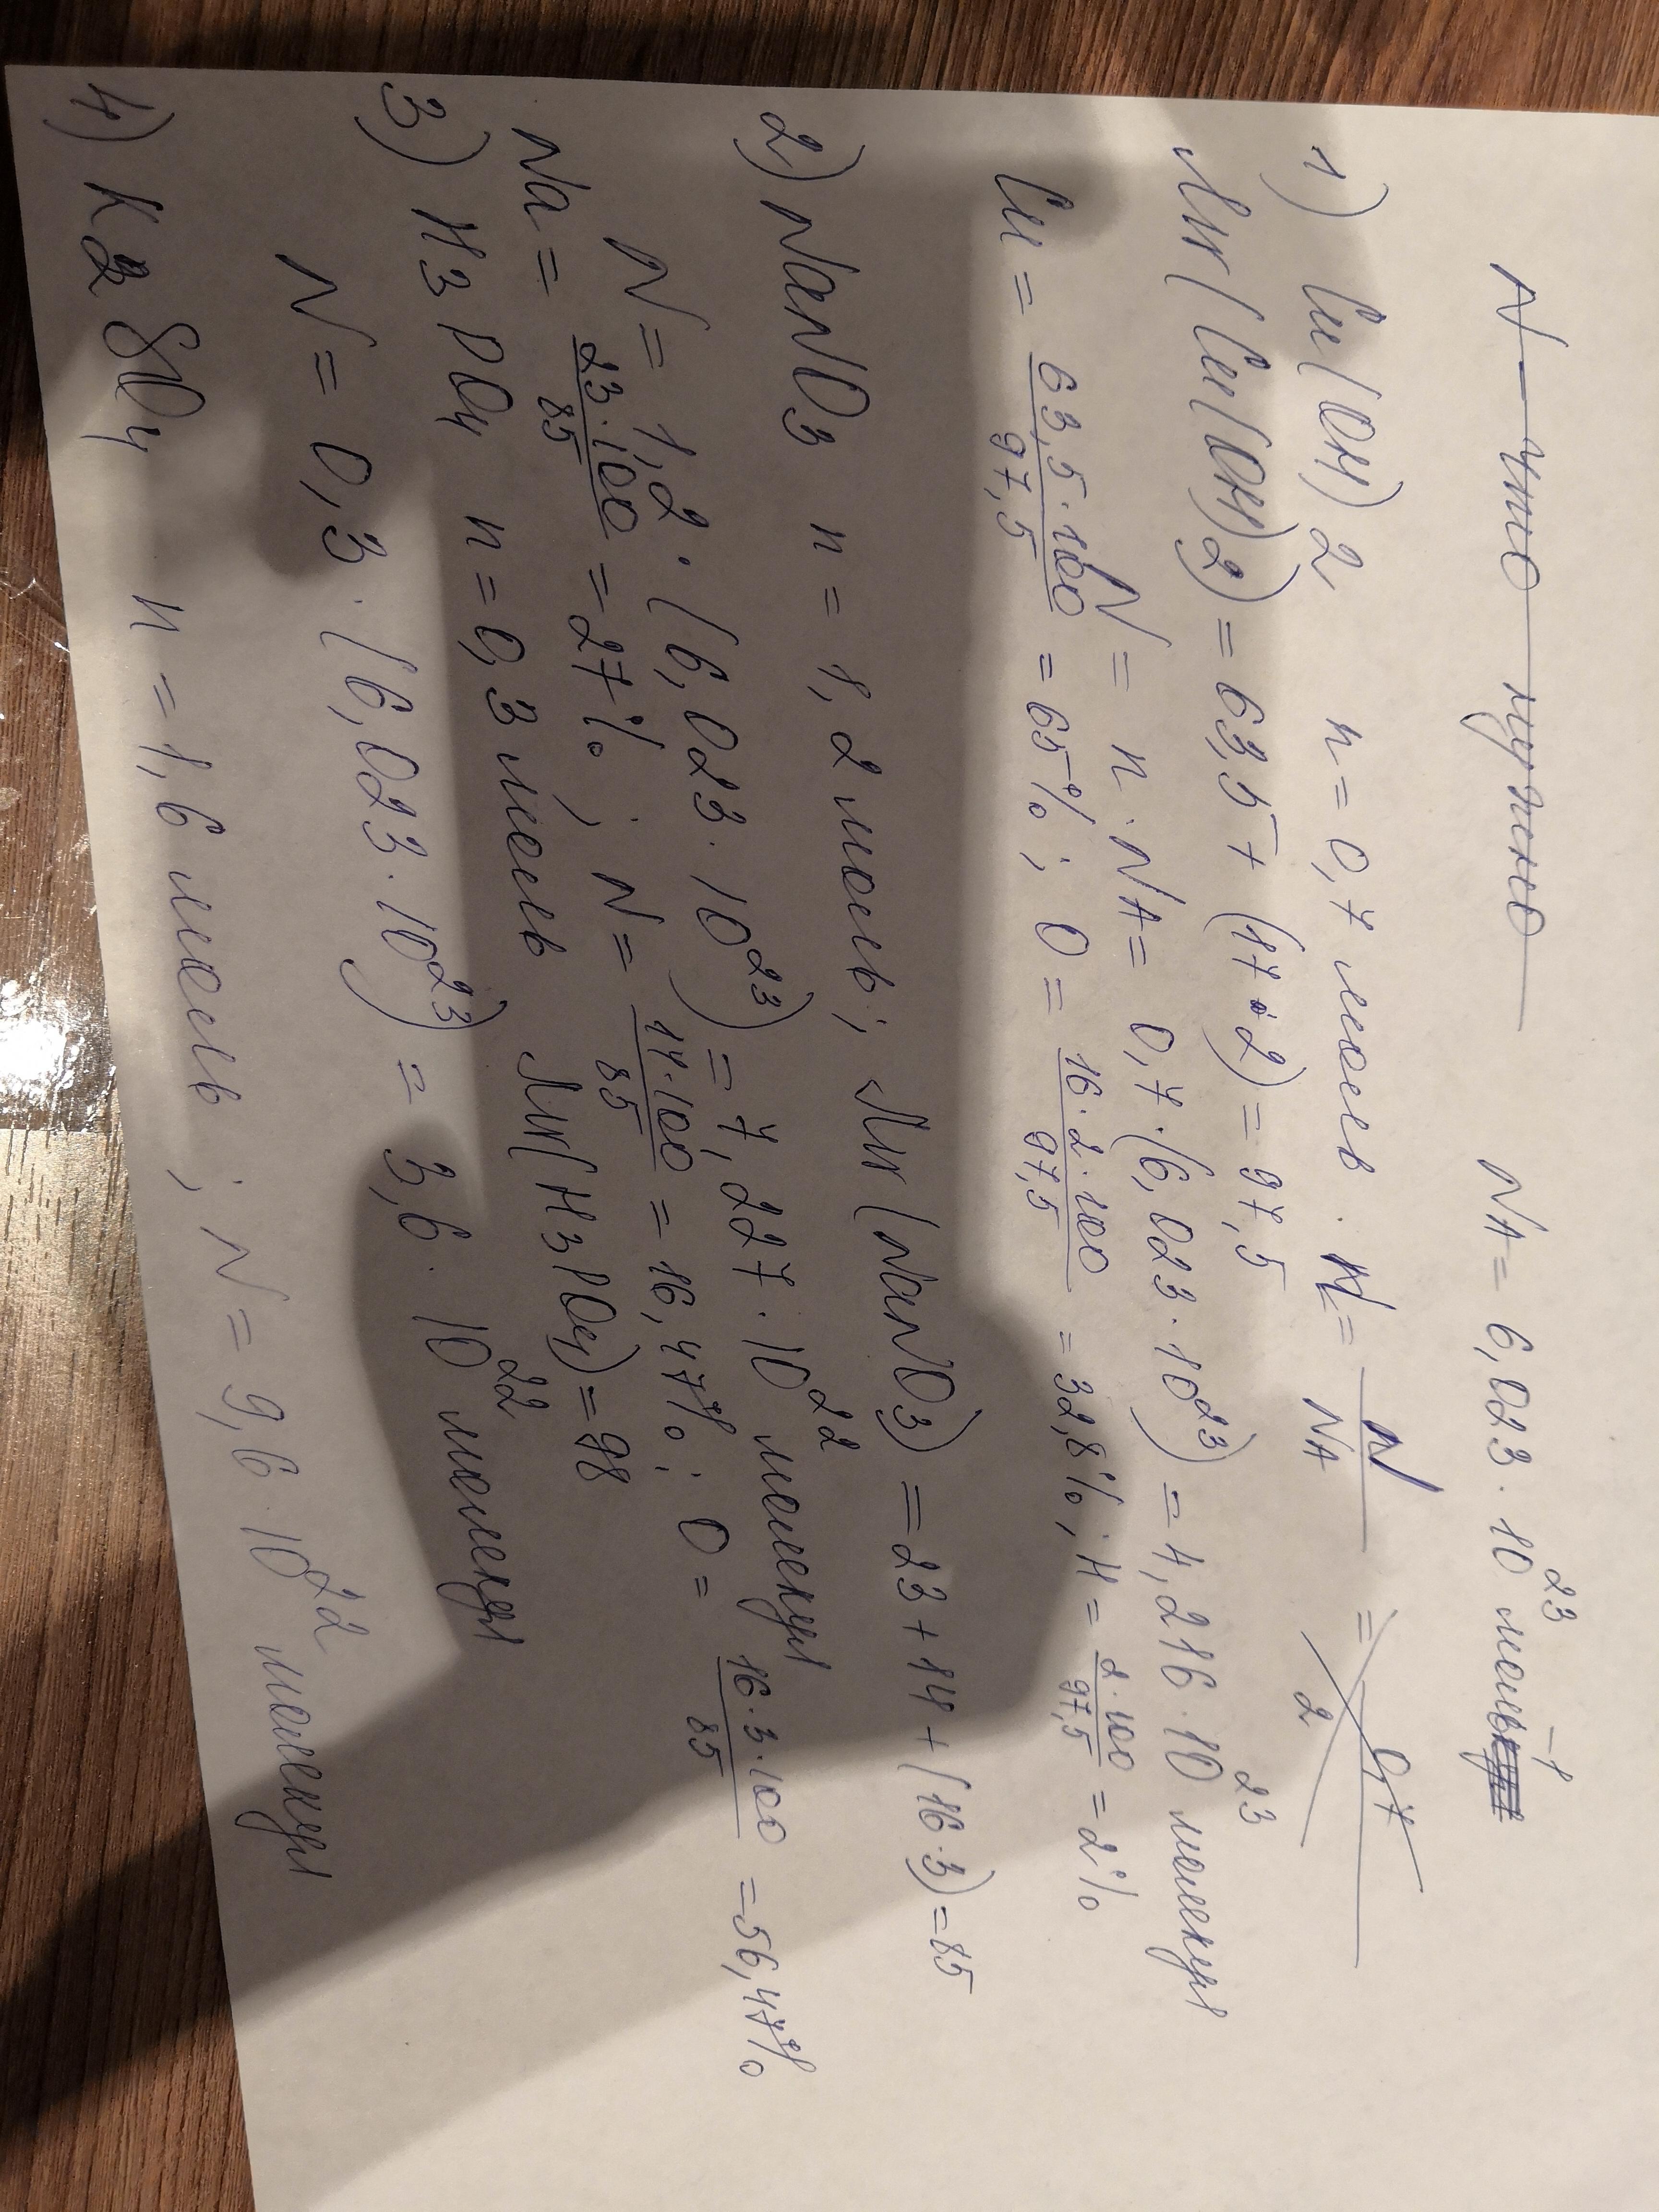 N – что нужно NA = 6,023 · 10^23 моль^-1
1) Cu(OH)2 n = 0,7 моль. n = N/NA =
Mr(Cu(OH)2) = 63,5 + (17·2) = 97,5
N = n · NA = 0,7 · (6,023 · 10^23) = 4,216 · 10^23 молекул
Cu = 63,5·100/97,5 = 65%; O = 16·2·100/97,5 = 32,8%; H = 2·100/97,5 = 2%
2) NaNO3 n = 1,2 моль; Mr(NaNO3) = 23 + 14 + (16·3) = 85
N = 1,2 · (6,023 · 10^23) = 7,227 · 10^22 молекул
Na = 23·100/85 = 27%; N = 14·100/85 = 16,47%; O = 16·3·100/85 = 56,47%
3) H3PO4 n = 0,3 моль Mr(H3PO4) = 98
N = 0,3 · (6,023 · 10^23) = 3,6 · 10^22 молекул
4) K2SO4 n = 1,6 моль; N = 9,6 · 10^22 молекул